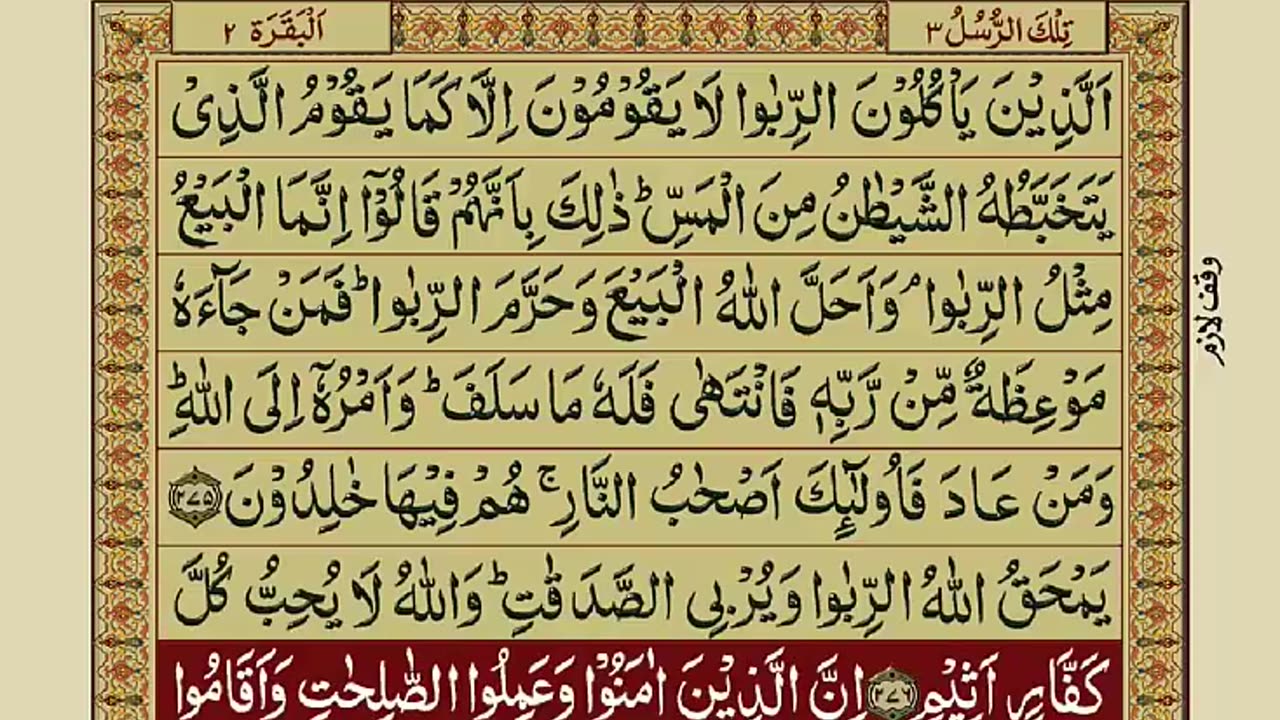 تِلْكَ الرُّسُلُ ۳
اَلْبَقَرَة ۲
اَلَّذِیْنَ یَاْكُلُوْنَ الرِّبٰوا لَا یَقُوْمُوْنَ اِلَّا كَمَا یَقُوْمُ الَّذِیْ
یَتَخَبَّطُهُ الشَّیْطٰنُ مِنَ الْمَسِّ ؕ ذٰلِكَ بِاَنَّهُمْ قَالُوْۤا اِنَّمَا الْبَیْعُ
مِثْلُ الرِّبٰوا ۘ وَاَحَلَّ اللّٰهُ الْبَیْعَ وَحَرَّمَ الرِّبٰوا ؕ فَمَنْ جَآءَهٗ
مَوْعِظَةٌ مِّنْ رَّبِّهٖ فَانْتَهٰی فَلَهٗ مَا سَلَفَ ؕ وَاَمْرُهٗۤ اِلَی اللّٰهِ ؕ
وَمَنْ عَادَ فَاُولٰٓئِكَ اَصْحٰبُ النَّارِ ۚ هُمْ فِیْهَا خٰلِدُوْنَ ﴿۲۷۵﴾
یَمْحَقُ اللّٰهُ الرِّبٰوا وَیُرْبِی الصَّدَقٰتِ ؕ وَاللّٰهُ لَا یُحِبُّ كُلَّ
كَفَّارٍ اَثِیْمٍ ﴿۲۷۶﴾ اِنَّ الَّذِیْنَ اٰمَنُوْا وَعَمِلُوا الصّٰلِحٰتِ وَاَقَامُوا
وقف لازم